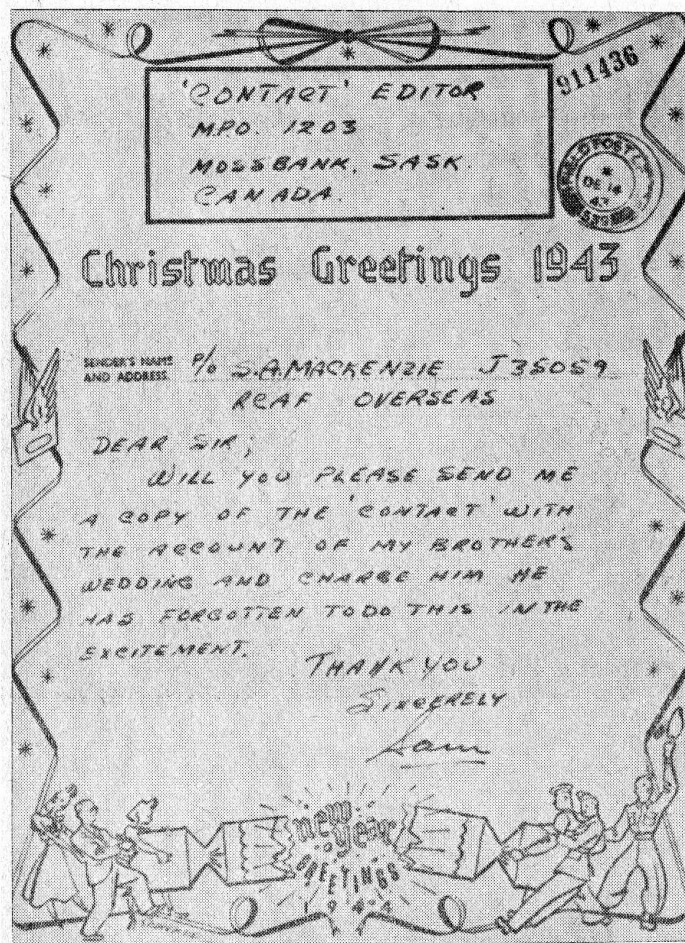 'CONTACT' EDITOR
M.P.O. 1203
MOSSBANK, SASK.
CANADA.
911436
FIELD POST
DE 14
43
Christmas Greetings 1943
SENDER'S NAME
AND ADDRESS
P/O S.A. MACKENZIE J35059
RCAF OVERSEAS
DEAR SIR;
WILL YOU PLEASE SEND ME
A COPY OF THE 'CONTACT' WITH
THE ACCOUNT OF MY BROTHER'S
WEDDING AND CHARGE HIM HE
HAS FORGOTTEN TO DO THIS IN THE
EXCITEMENT.
THANK YOU
SINCERELY
Sam
new
year
GREETINGS
1944